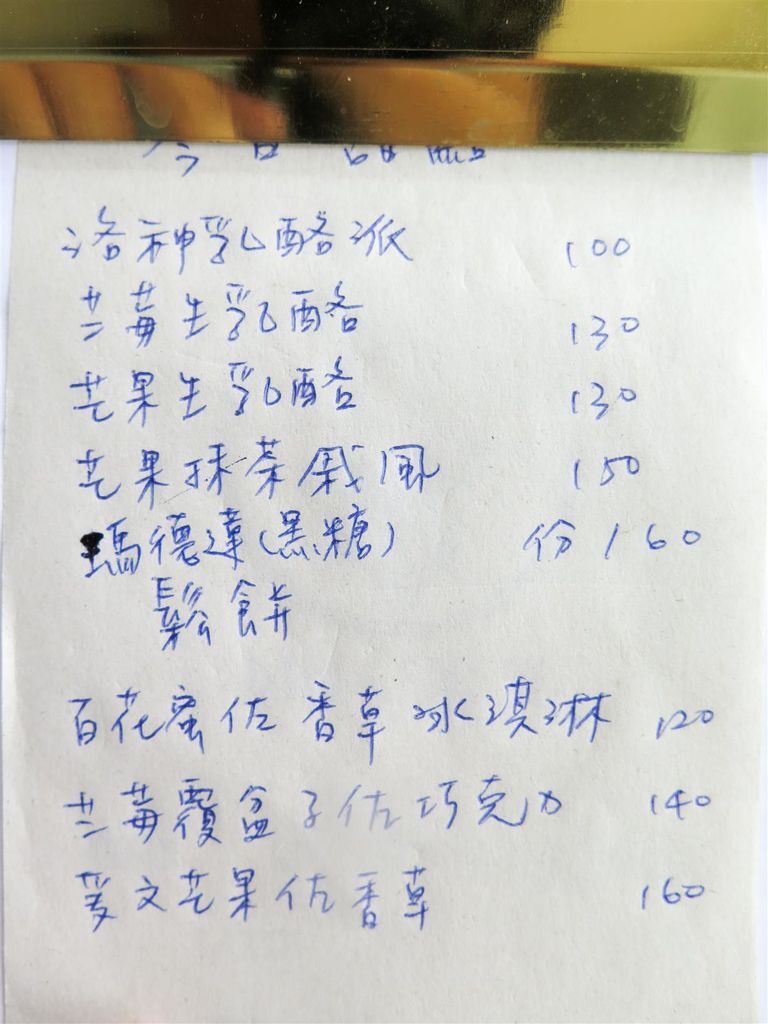 今日
洛神乳酪派 100
兰莓生乳酪 130
芒果生乳酪 130
芒果抹茶戚風 150
瑪德蓮(黑糖) 份160
鬆餅
百花蜜佐香草冰淇淋 120
兰莓覆盆子佐巧克力 140
愛文芒果佐香草 160